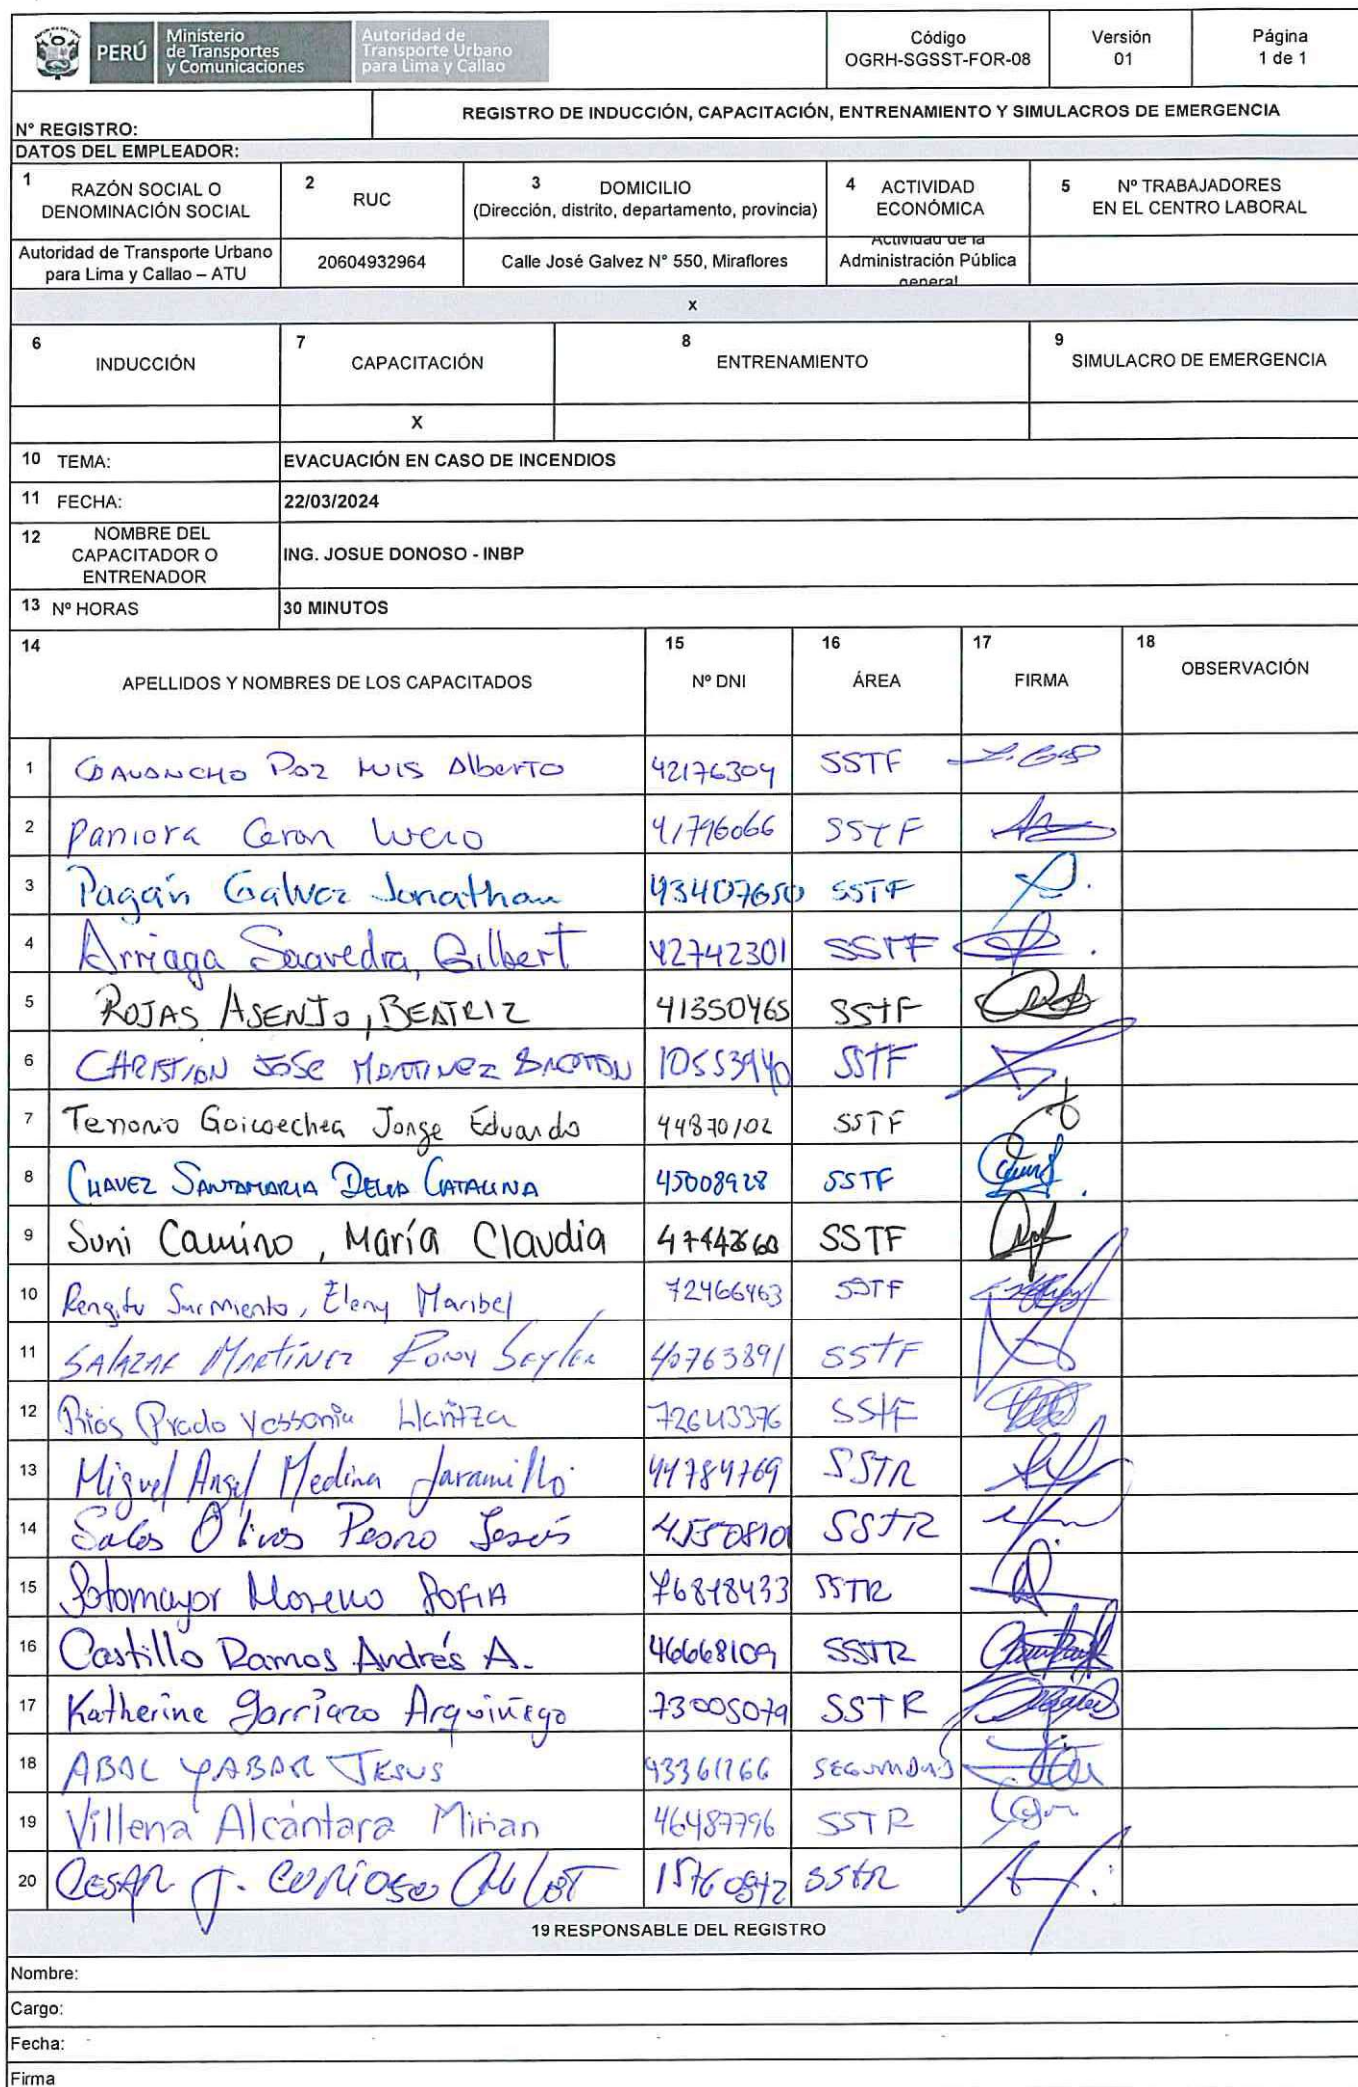 PERÚ Ministerio de Transportes y Comunicaciones Autoridad de Transporte Urbano para Lima y Callao
Código OGRH-SGSST-FOR-08
Versión 01
Página 1 de 1
N° REGISTRO:
REGISTRO DE INDUCCIÓN, CAPACITACIÓN, ENTRENAMIENTO Y SIMULACROS DE EMERGENCIA
DATOS DEL EMPLEADOR:
1 RAZÓN SOCIAL O DENOMINACIÓN SOCIAL
2 RUC
3 DOMICILIO (Dirección, distrito, departamento, provincia)
4 ACTIVIDAD ECONÓMICA
5 Nº TRABAJADORES EN EL CENTRO LABORAL
Autoridad de Transporte Urbano para Lima y Callao – ATU
20604932964
Calle José Galvez N° 550, Miraflores
Actividad de la Administración Pública general
x
6 INDUCCIÓN
7 CAPACITACIÓN
8 ENTRENAMIENTO
9 SIMULACRO DE EMERGENCIA
X
10 TEMA: EVACUACIÓN EN CASO DE INCENDIOS
11 FECHA: 22/03/2024
12 NOMBRE DEL CAPACITADOR O ENTRENADOR ING. JOSUE DONOSO - INBP
13 Nº HORAS 30 MINUTOS
14 APELLIDOS Y NOMBRES DE LOS CAPACITADOS
15 Nº DNI
16 ÁREA
17 FIRMA
18 OBSERVACIÓN
1 Luis Alberto 42176304 SSTF
2 Paniora Ceron 41796066 SSTF
3 Pagán Galvez Jonathan SSTF
4 Arriaga Saavedra, Gilbert 42742301 SSTF
5 ROJAS ASENJO, BEATRIZ 41350465 SSTF
6 CHRISTIAN JOSE MARTINEZ 10553940 SSTF
7 Tenorio Goicoechea Jorge Eduardo 44870102 SSTF
8 CHAVEZ SANTAMARIA DELIA CATALINA 45008928 SSTF
9 Suni Camino, María Claudia SSTF
10 Sarmiento, Eleny Maribel 72466463 SSTF
11 SALAZAR MARTÍNEZ RONY 40763891 SSTF
12 Rios Prado Yessenia 72643376 SSTF
13 Miguel Angel Medina Jaramillo 44784769 SSTR
14 Salas Olivos Pedro Jesús SSTR
15 Sotomayor Moreno SOFIA 76818433 SSTR
16 Castillo Ramos Andrés A. 46668109 SSTR
17 Katherine Garriazo Arquiñego 73005079 SSTR
18 JESUS 43361766
19 Villena Alcántara Mirian 46487796 SSTR
20 CESAR J. CURIOSO SSTR
19 RESPONSABLE DEL REGISTRO
Nombre:
Cargo:
Fecha:
Firma